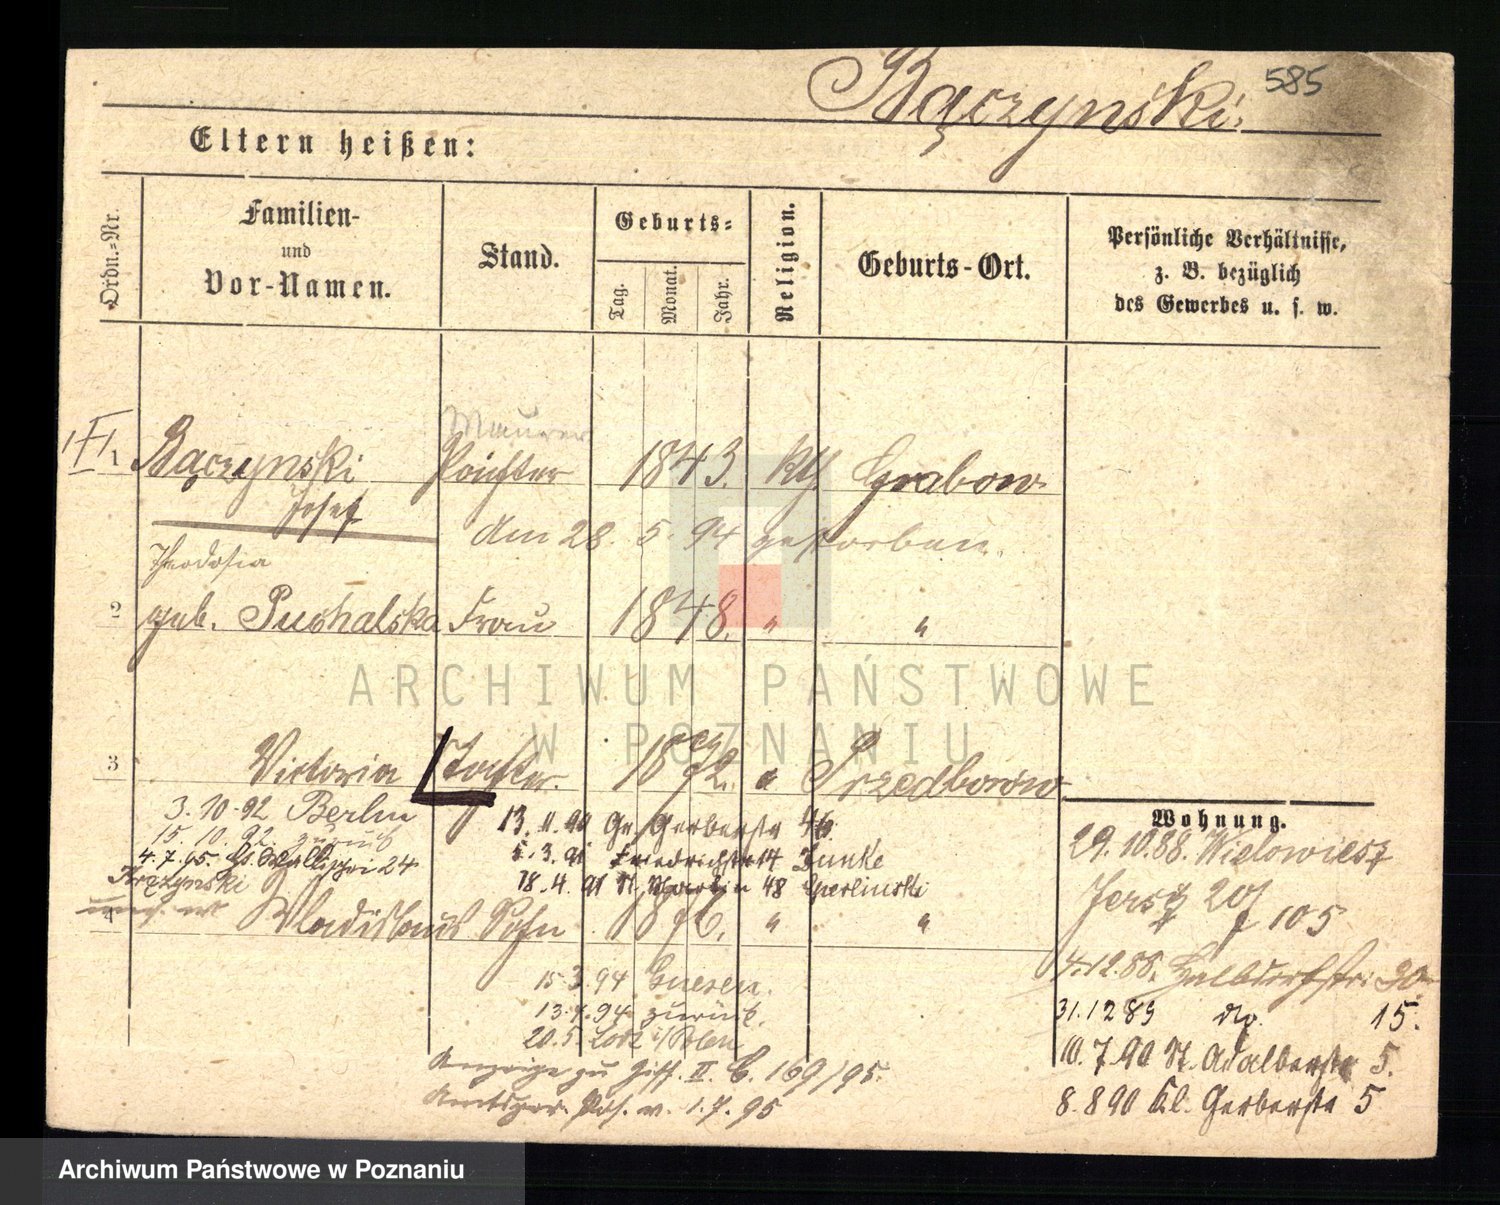 Bączynski.
585
Eltern heißen:
Ordn.=Nr.
Familien-
und
Vor-Namen.
Stand.
Geburts=
Tag.
Monat.
Jahr.
Religion.
Geburts-Ort.
Persönliche Verhältnisse,
z. B. bezüglich
des Gewerbes u. s. w.
Maurer
1 Bączynski 1843. kth Grabow.
Josef
Am 28. 5. 94 gestorben.
Theodosia
2 geb. Puchalska Frau 1848. " "
ARCHIWUM PAŃSTWOWE
W POZNANIU
3 Victoria Tochter. 1872. " Przedborow
3. 10. 92 Berlin
15. 10. 92 zurück
4. 7. 95. 24
13. 11. 90 Gr. Gerberstr 46.
5. 3. 91 Friedrichstr 14 Funke
18. 4. 91 St. Martin 48
4 Vladislaus Sohn 1876. " "
15. 3. 94 Gnesen.
13. 4. 94 zurück.
20. 5. Lodz i/Polen
Anzeige zu II. C. 169/95.
v. 1. 7. 95
Wohnung.
29. 10. 88. Wielowiesz
Jersitz 105
4. 12. 88. Halbdorfstr. 30
31. 12 89 do. 15.
10. 7. 90 St. Adalbertstr 5.
8. 8 90 Kl. Gerberstr 5
Archiwum Państwowe w Poznaniu